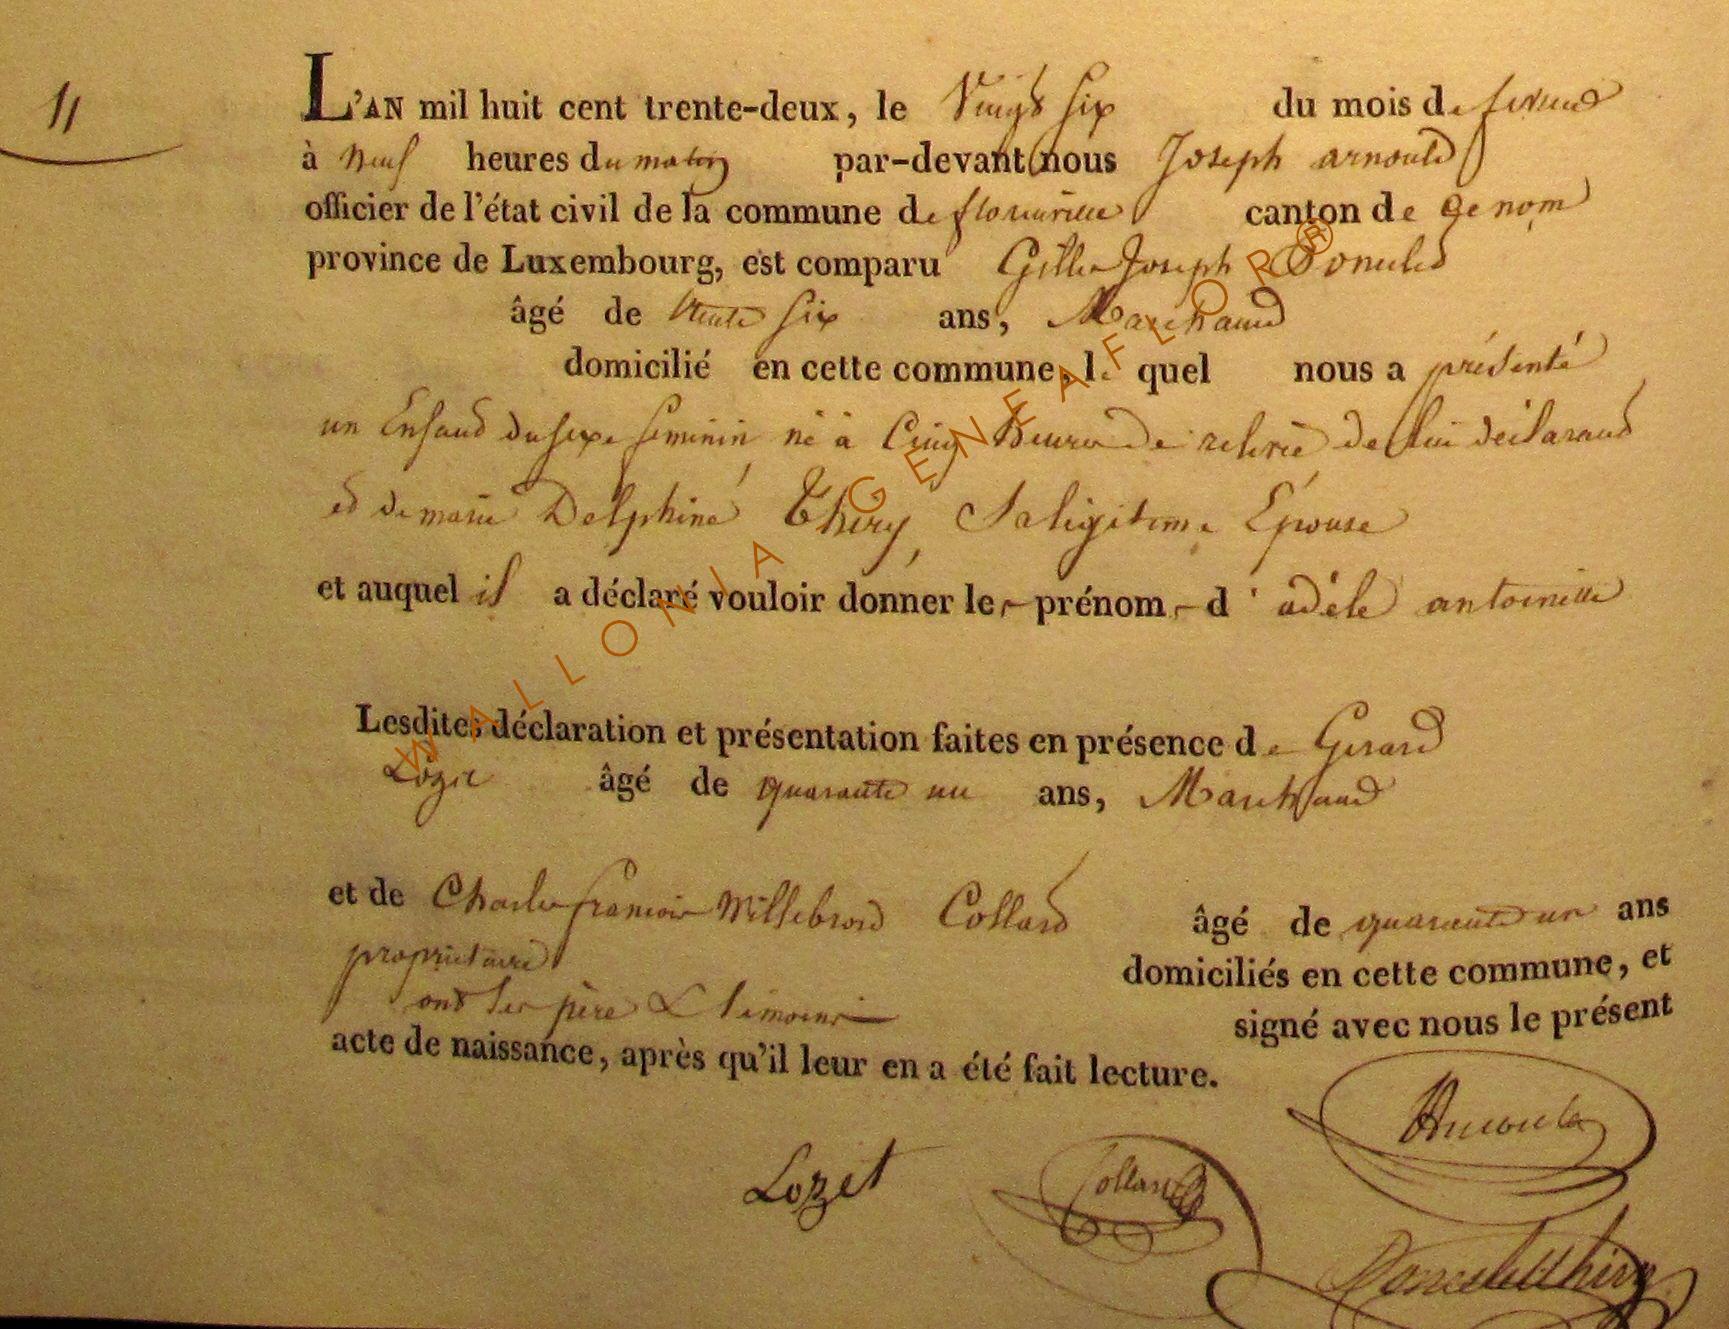 11
L'AN mil huit cent trente-deux, le Vingt six du mois de fevrier
à neuf heures du matin par-devant nous Joseph arnould
officier de l'état civil de la commune de florenville canton de
province de Luxembourg, est comparu Gilles Joseph
âgé de trente six ans, Marchand
domicilié en cette commune, le quel nous a présenté
un Enfant du sexe feminin né à Cinq heures de de lui déclarant
et de marie Delphine Thiry, Sa legitime Epouse
et auquel il a déclaré vouloir donner le prénom d'adèle antoinette
Lesdites déclaration et présentation faites en présence de Gerard
Lozet âgé de quarante un ans, Marchand
et de Charles francois Willebrord Collard âgé de quarante un ans
proprietaire domiciliés en cette commune, et
ont les père & temoins signé avec nous le présent
acte de naissance, après qu'il leur en a été fait lecture.
Arnould
Lozet Collard
WALLONIA GENEAFLOR®